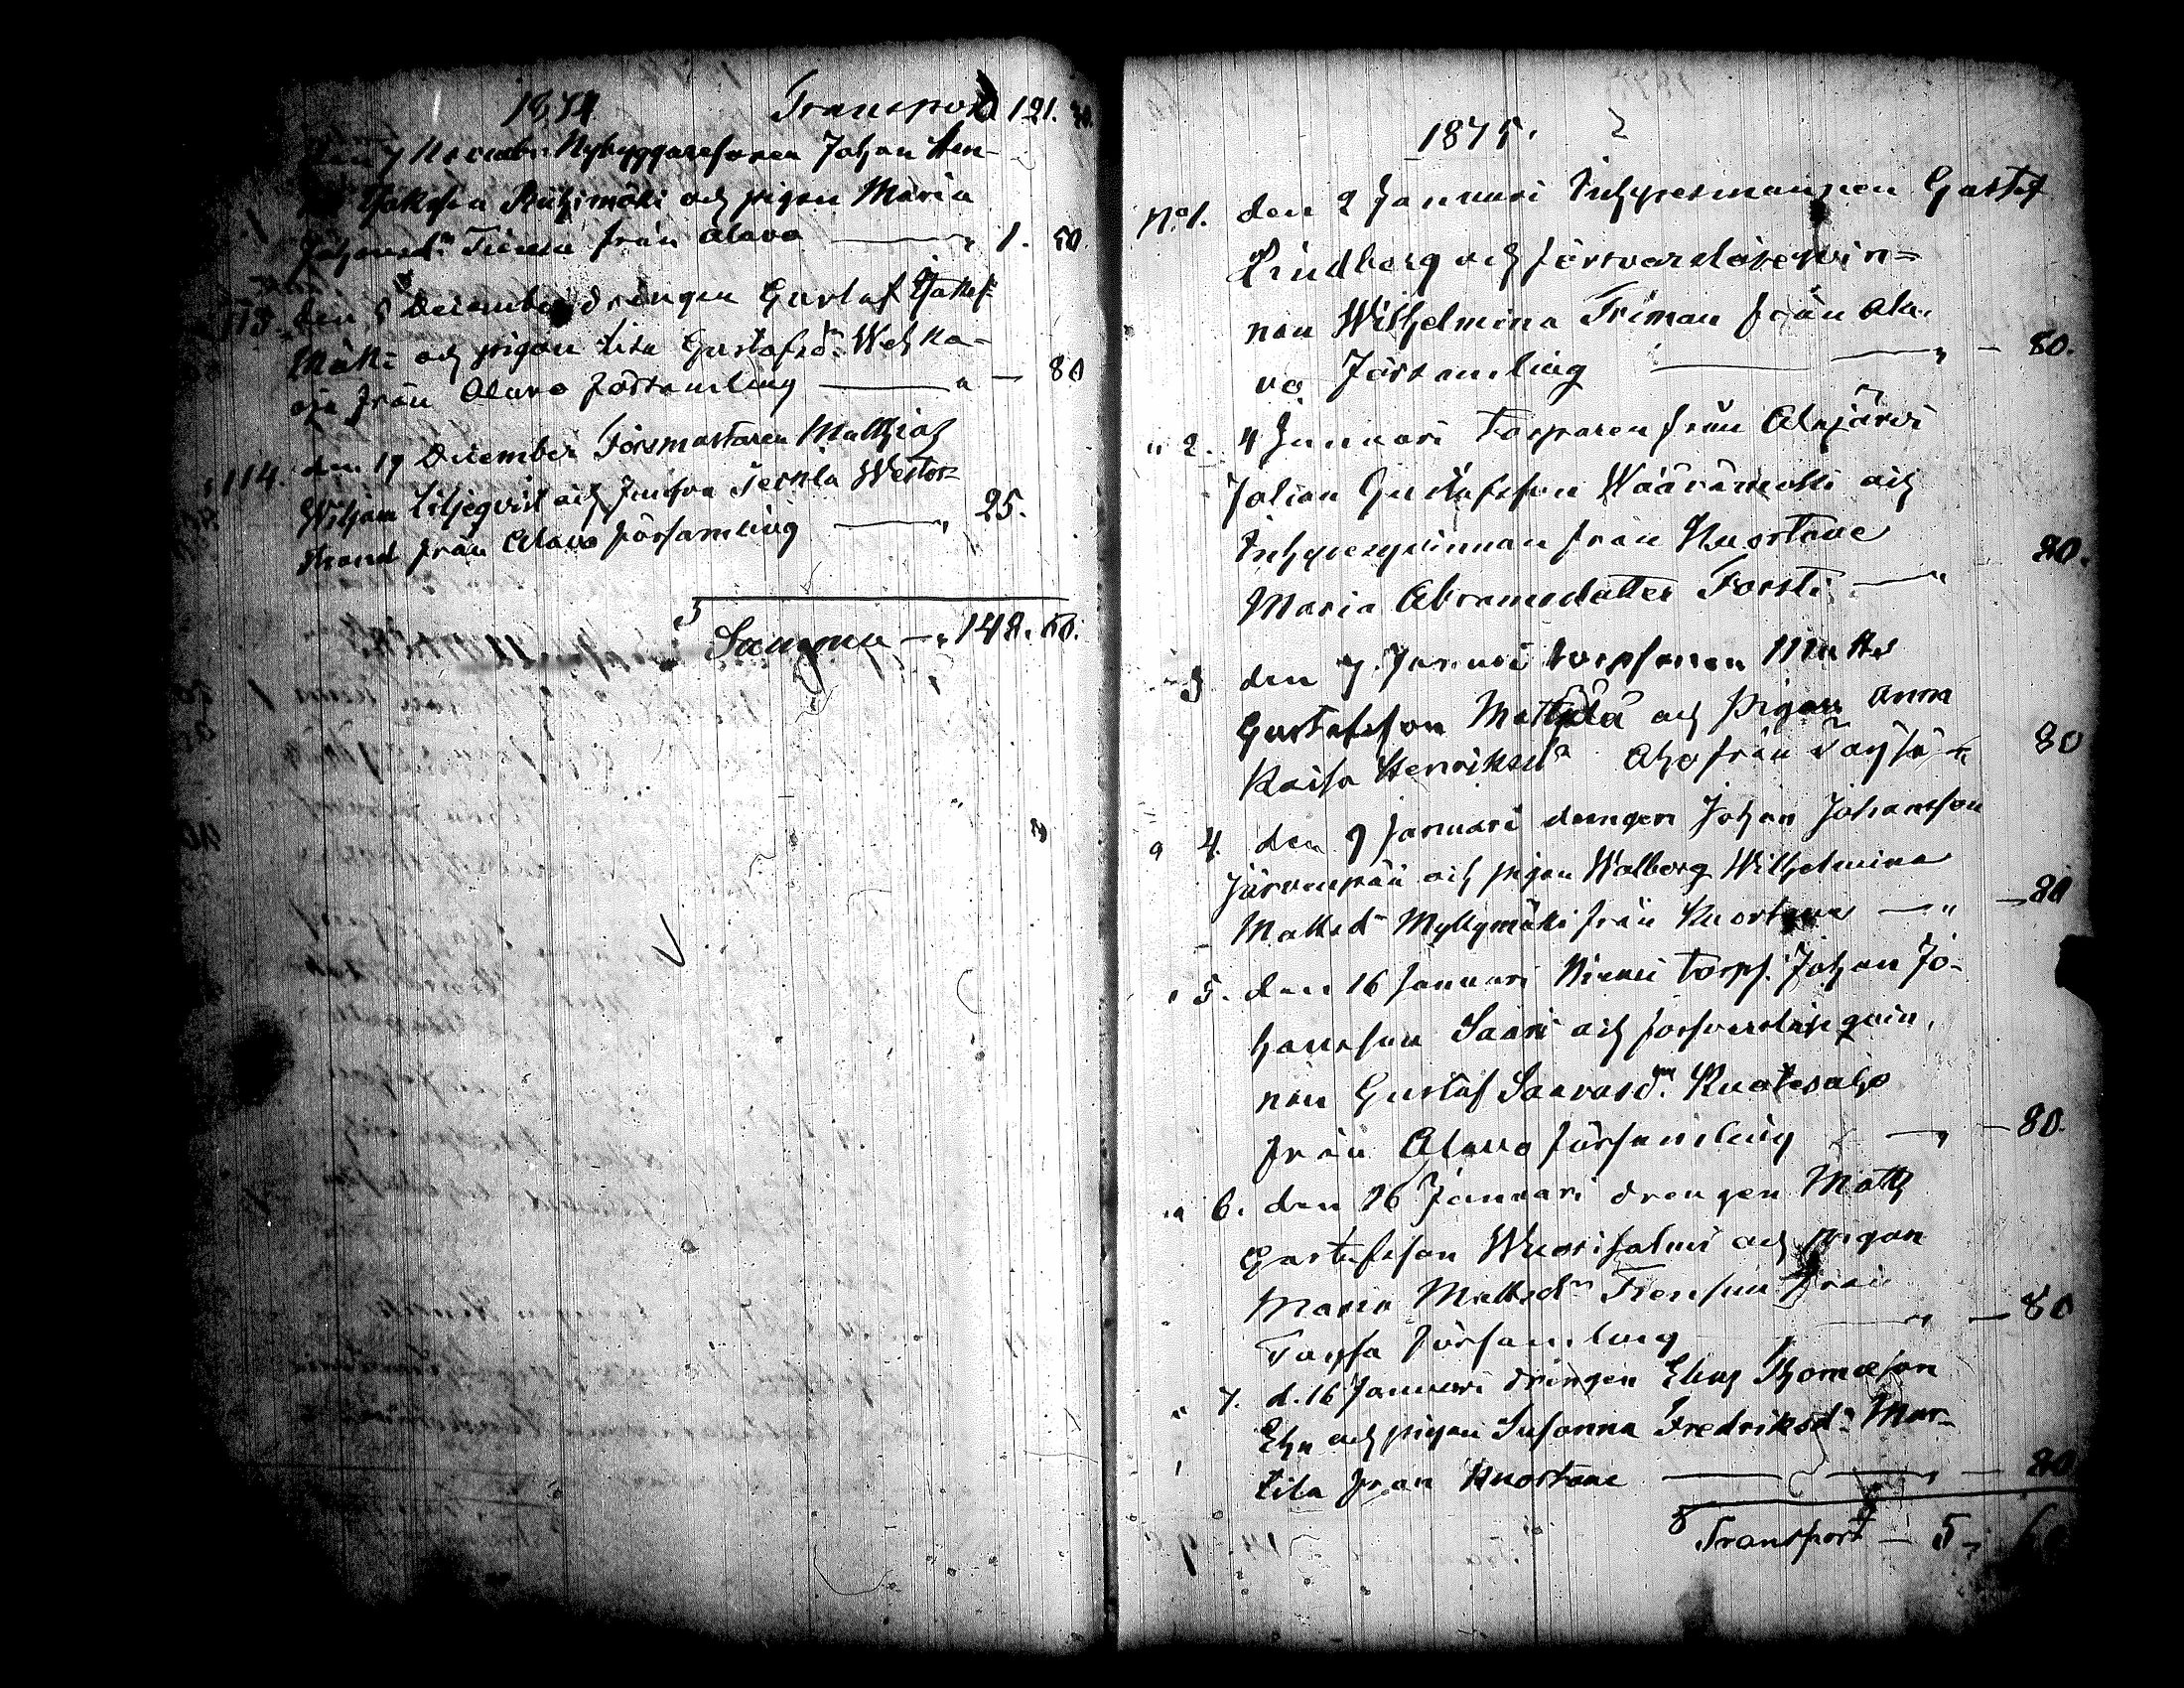 1874 Transport 121. 20.
den 7 Novemb. Nybyggaresonen Johan Hen-
Riihimäki och pigan Maria
Johansdr från Alavo — 1. 60.
113. den 5 December drengen Gustaf
Mäki och pigan Lisa Gustafsdr Wehka-
oja från Alavo församling — " — 80
" 114. den 19 December Matthias
Wiljam Liljeqvist och Westor-
strand från Alavo församling — " 25.
Summa — " 148. 60.
1875.
No 1. den 2 Januari Inhysesmannen Gustaf
Lindberg och försvarslöseqvin=
nan Wilhelmina Friman från Ala-
vo Församling — " — 80.
" 2. 4 Januari Torparen från Alajärvi
Johan Gustafsson Wääränoski och
Inhysesqvinnan från Kuortane
Maria Abramsdatter Forsti — " 80.
" 3 den 7. Januari torpsonen Matts
Gustafsson Mattila och Pigan Anna
Kaisa Henriksdr Aho från Töysä — " 80
" 4. den 9 Januari drengen Johan Johansson
Järvenpää och pigan Walborg Wilhelmina
Mattsdr Myllymäki från Kuortane — " — 80
" 5. den 16 Januari torps. Johan Jo-
hansson Saari och försvarslöseqvin-
nan Gustaf
från Alavo församling — " — 80.
" 6. den 16 Januari drengen Matts
Gustafsson och pigan
Maria Mattsdr från
Töysä församling — " — 80
" 7. d. 16 Januari drengen Elias Thomasson
och pigan Susanna Fredriksdr Mar-
tila från Kuortane — " — 80
Transport — 5 "